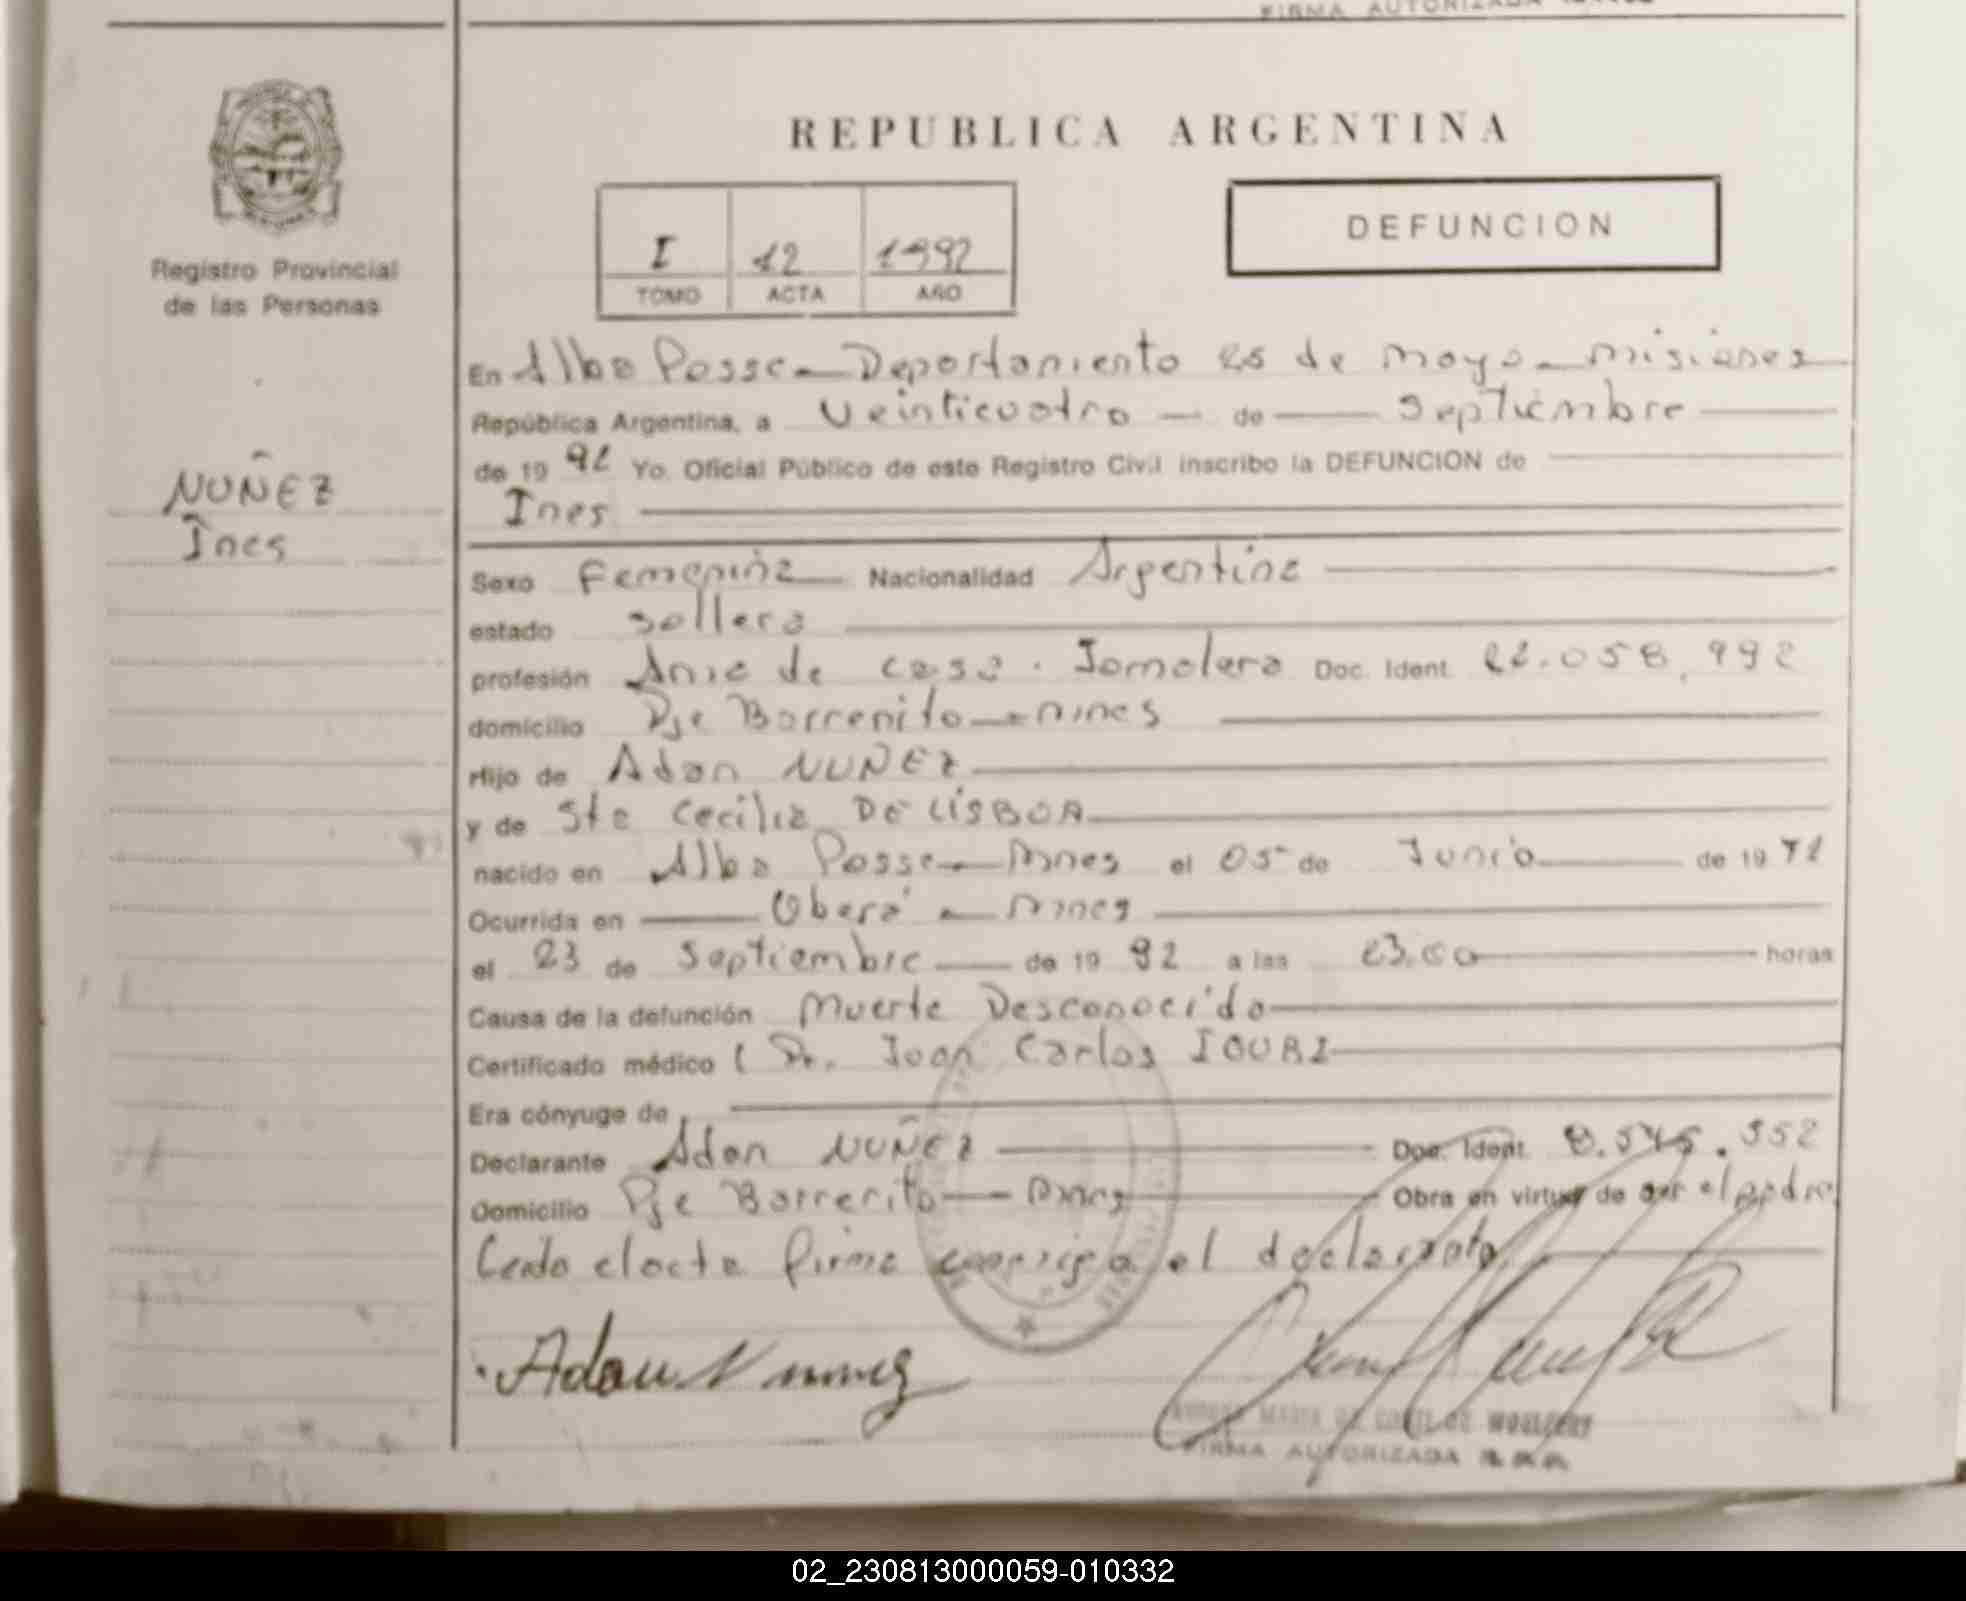 FIRMA AUTORIZADA
REPUBLICA ARGENTINA
DEFUNCION
I 12 1992
TOMO ACTA AÑO
Registro Provincial
de las Personas
NUÑEZ
Ines
En Alba Posse - Departamento 25 de Mayo - Misiones
República Argentina, a Veinticuatro — de — Septiembre
de 19 92 Yo. Oficial Público de este Registro Civil inscribo la DEFUNCION de
Ines
Sexo Femenina Nacionalidad Argentina
estado Soltera
profesión Ama de casa. Jornalera Doc. Ident. 22.058.992
domicilio Pje Barrerito - Mnes
Hijo de Adan NUÑEZ
y de Sta Cecilia DE LISBOA
nacido en Alba Posse - Mnes el 05 de Junio de 19 71
Ocurrida en Oberá - Mnes
el 23 de Septiembre de 19 92 a las 23.00 horas
Causa de la defunción Muerte Desconocida
Certificado médico ( Dr. Juan Carlos
Era cónyuge de
Declarante Adan NUÑEZ Doc. Ident. 8.545.552
Domicilio Pje Barrerito - Mnes Obra en virtud de ser el padre
Leida el acta firma conmigo el declarante
Adan Nunnez
FIRMA AUTORIZADA
02_230813000059-010332